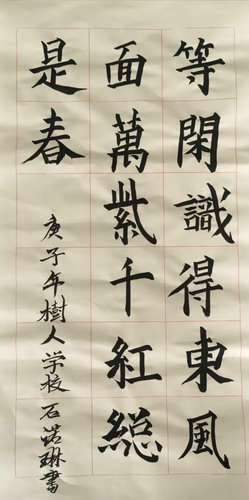 等閑識得東風
面萬紫千紅総
是春
庚子年樹人学校石诺琳書